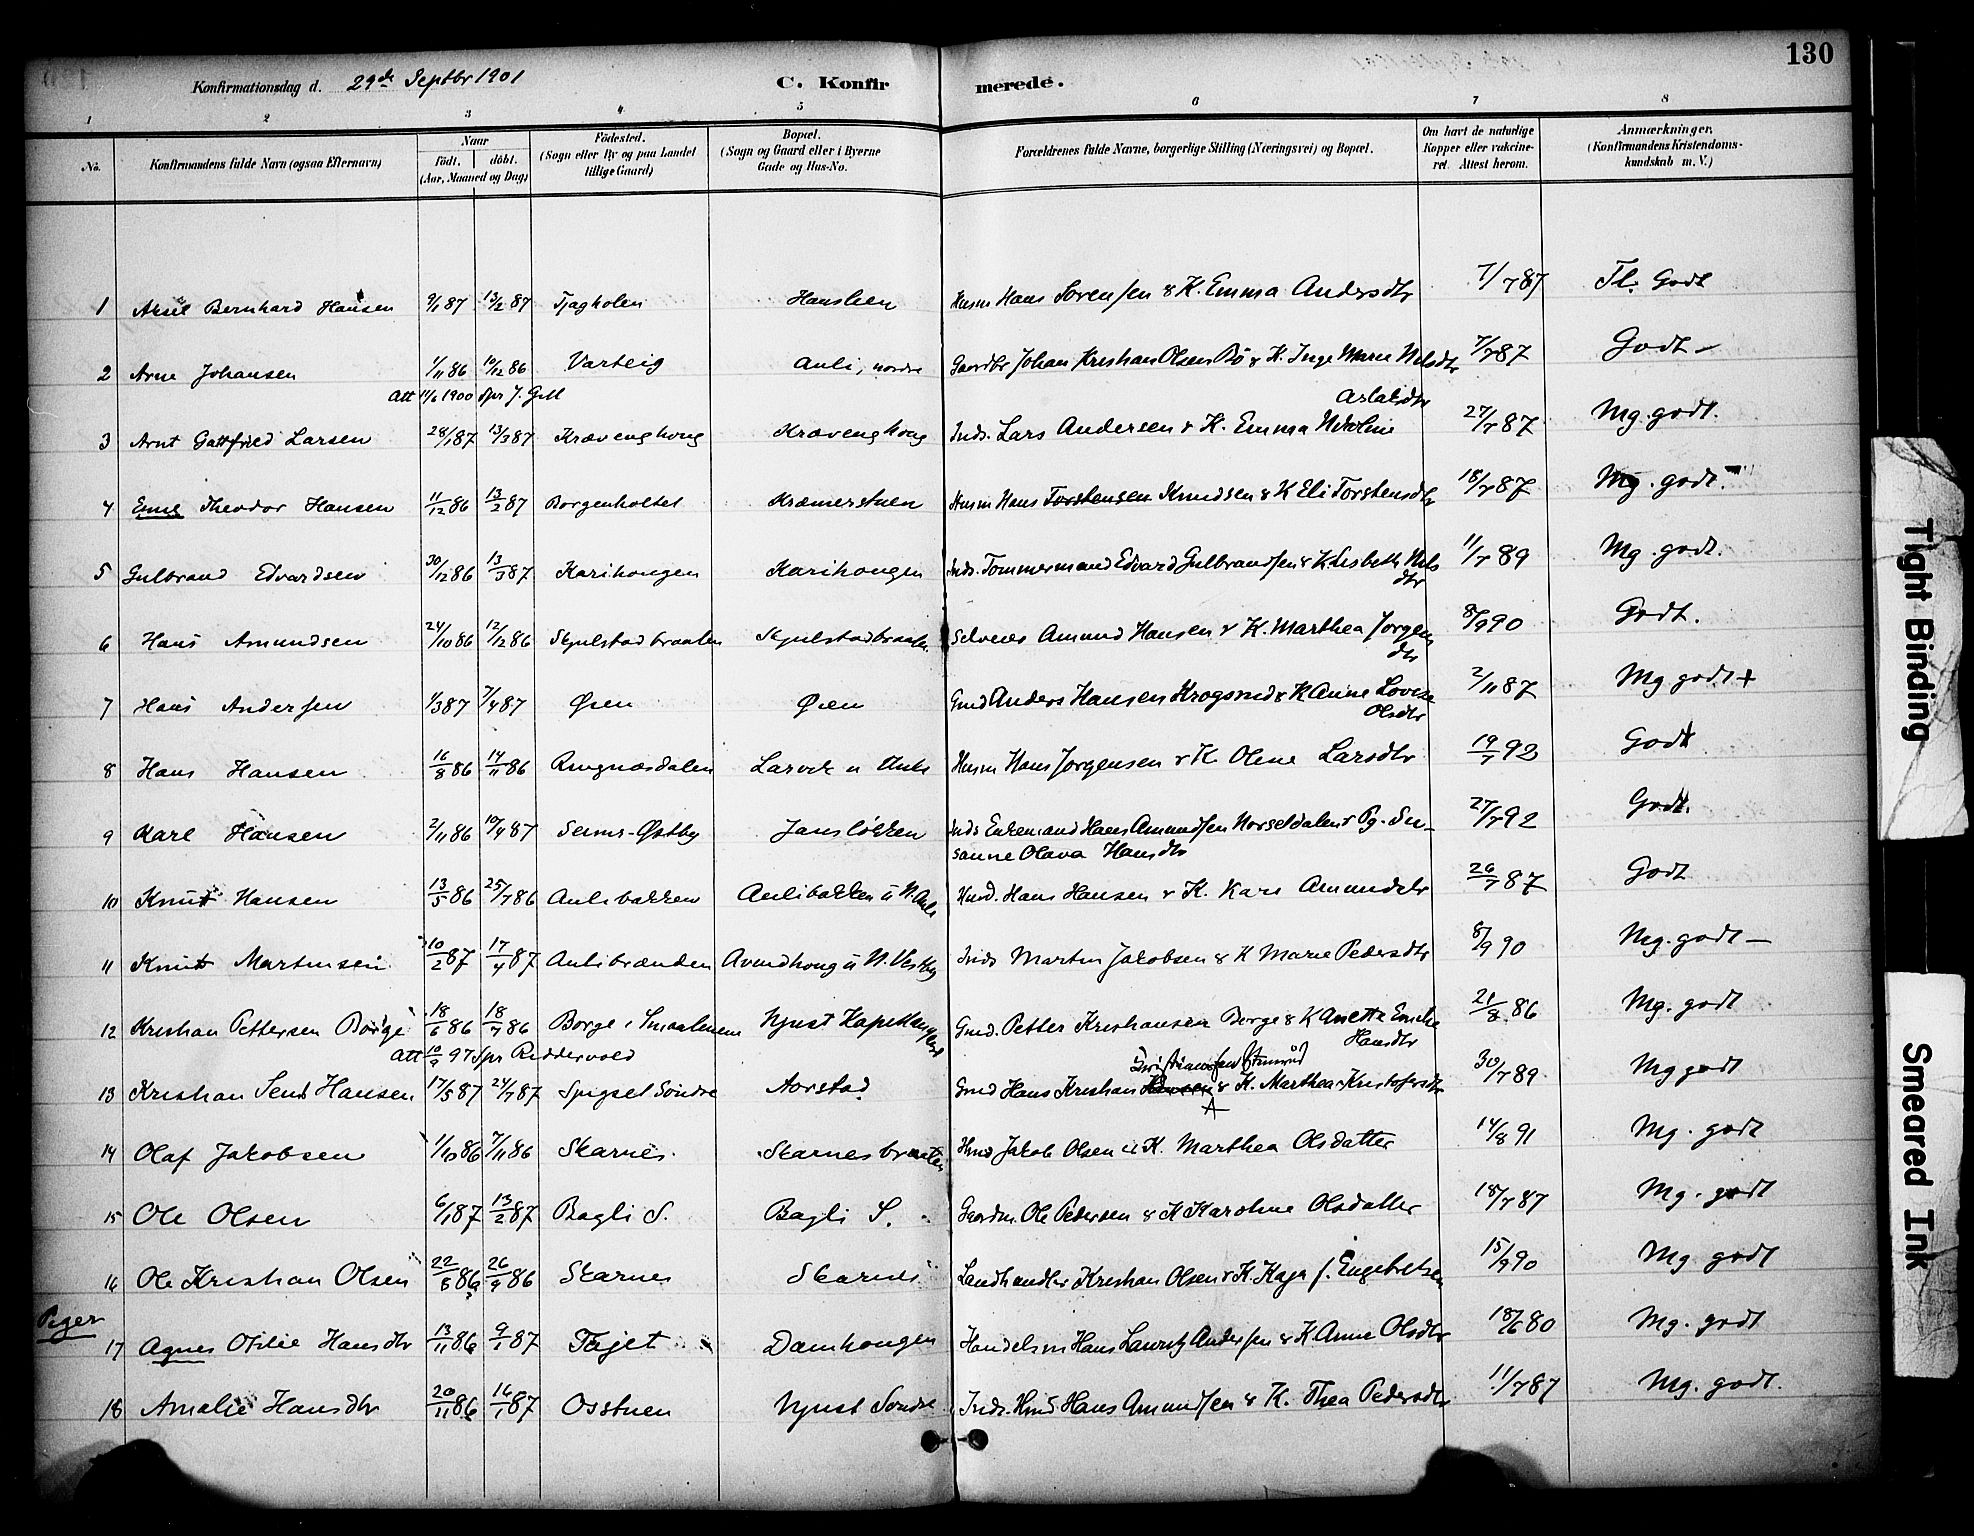 130
Konfirmationsdag d. 29de Septbr 1901 C. Konfirmerede.
1 2 3 4 5 6 7 8
No. Konfirmandens fulde Navn (ogsaa Efternavn) Naar födt. döbt. (Aar, Maaned og Dag) Födested. (Sogn eller By og paa Landet tillige Gaard) Bopæl. (Sogn og Gaard eller i Byerne Gade og Hus-No. Forældrenes fulde Navne, borgerlige Stilling (Næringsvei) og Bopæl. Om havt de naturlige Kopper eller vakcineret. Attest herom. Anmærkninger. (Konfirmandens Kristendomskundskab m. V.)
1 Aksel Bernhard Hansen 9/1 87 13/2 87 Tjagholen Husm Hans Sorensen & K. Emma Andersdtr 7/7 87 Tl. Godt
2 Arne Johansen 1/11 86 10/12 86 Varteig Auli, nordre Gaardbr Johan Kristian Olsen Bö & K. Inge Marie Nilsdtr 7/7 87 Godt –
Att 11/6 1900 Spr J. Gill
3 Arnt Gattfried Larsen 28/1 87 13/3 87 Krævenghoug Krævenghoug Inds. Lars Andersen & K. Emma Nikoline Aslaksdtr 27/7 87 Mg. godt.
4 Emil Theodor Hansen 11/12 86 13/2 87 Borgenholtet Kræmerstuen Husm Hans Torstensen Knudsen & K Eli Torstensdtr 18/7 87 Mg. godt.
5 Gulbrand Edvardsen 30/12 86 13/3 87 Karihougen Karihougen Inds. Tommermand Edvard Gulbrandsen & K Lisbeth Nilsdtr 11/7 89 Mg. godt.
6 Hans Amundsen 24/10 86 12/12 86 Skjulstadbraaten Skjulstadbraaten Selveier Amund Hansen & K. Marthea Jorgensdtr 8/9 90 Godt.
7 Hans Andersen 1/3 87 7/4 87 Øien Øien Gmd Anders Hansen Krogsrud & K Anne Lovise Olsdtr 2/11 87 Mg godt +
8 Hans Hansen 16/8 86 14/11 86 Ringnæsdalen Larvik u Auli Husm Hans Jorgensen & K. Olene Larsdtr 19/7 92 Godt
9 Karl Hansen 2/11 86 10/4 87 Seims-Østby Janslökken Inds Enkemand Hans Amundsen Norseldalen & Pg. Susanne Olava Hansdtr 27/7 92 Godt.
10 Knut Hansen 13/5 86 25/7 86 Aulibakken Aulibakken u N. Auli Hmd. Hans Hansen & K. Kari Amundsdtr 26/7 87 Godt
11 Knut Martinsen 10/2 87 17/4 87 Aulibrænden Avindhoug u N. Vestby Inds Martin Jakobsen & K Marie Pedersdtr 8/9 90 Mg. godt –
12 Kristian Pettersen Borge 18/6 86 18/7 86 Borge i Smaalenene Njust Gmd. Petter Kristiansen Borge & K Anette Emilie Hansdtr 21/8 86 Mg. godt
Att 10/9 97 Spr Riddervold
13 Kristian Hansen 17/5 87 24/7 87 Spigset Söndre Aarstad Gmd Hans Kristian Hansen & K. Marthea Kristofersdtr 30/7 89 Mg godt
14 Olaf Jakobsen 1/10 86 7/11 86 Skarnes Skarnesbraaten Hmd Jakob Olsen & K. Marthea Olsdatter 14/8 91 Mg. godt
15 Ole Olsen 6/1 87 13/2 87 Bagli S. Bagli S. Gaardm. Ole Pedersen & K Karoline Olsdatter 18/7 87 Mg. godt
16 Ole Kristian Olsen 22/8 86 26/9 86 Skarnes Skarnes Landhandler Kristian Olsen & K. Kaja f. Engebretsen 15/9 90 Mg godt
Piger
17 Agnes Otilie Hansdtr 13/11 86 9/1 87 Tajet Damhougen Handelsm Hans Lauritz Andersen & K Anne Olsdtr 18/6 80 Mg. godt
18 Amalie Hansdtr 20/11 86 16/1 87 Osstuen Njust Söndre Inds. Hmd Hans Amundsen & K. Thea Pedersdtr 11/7 87 Mg. godt.
Tight Binding
Smeared Ink